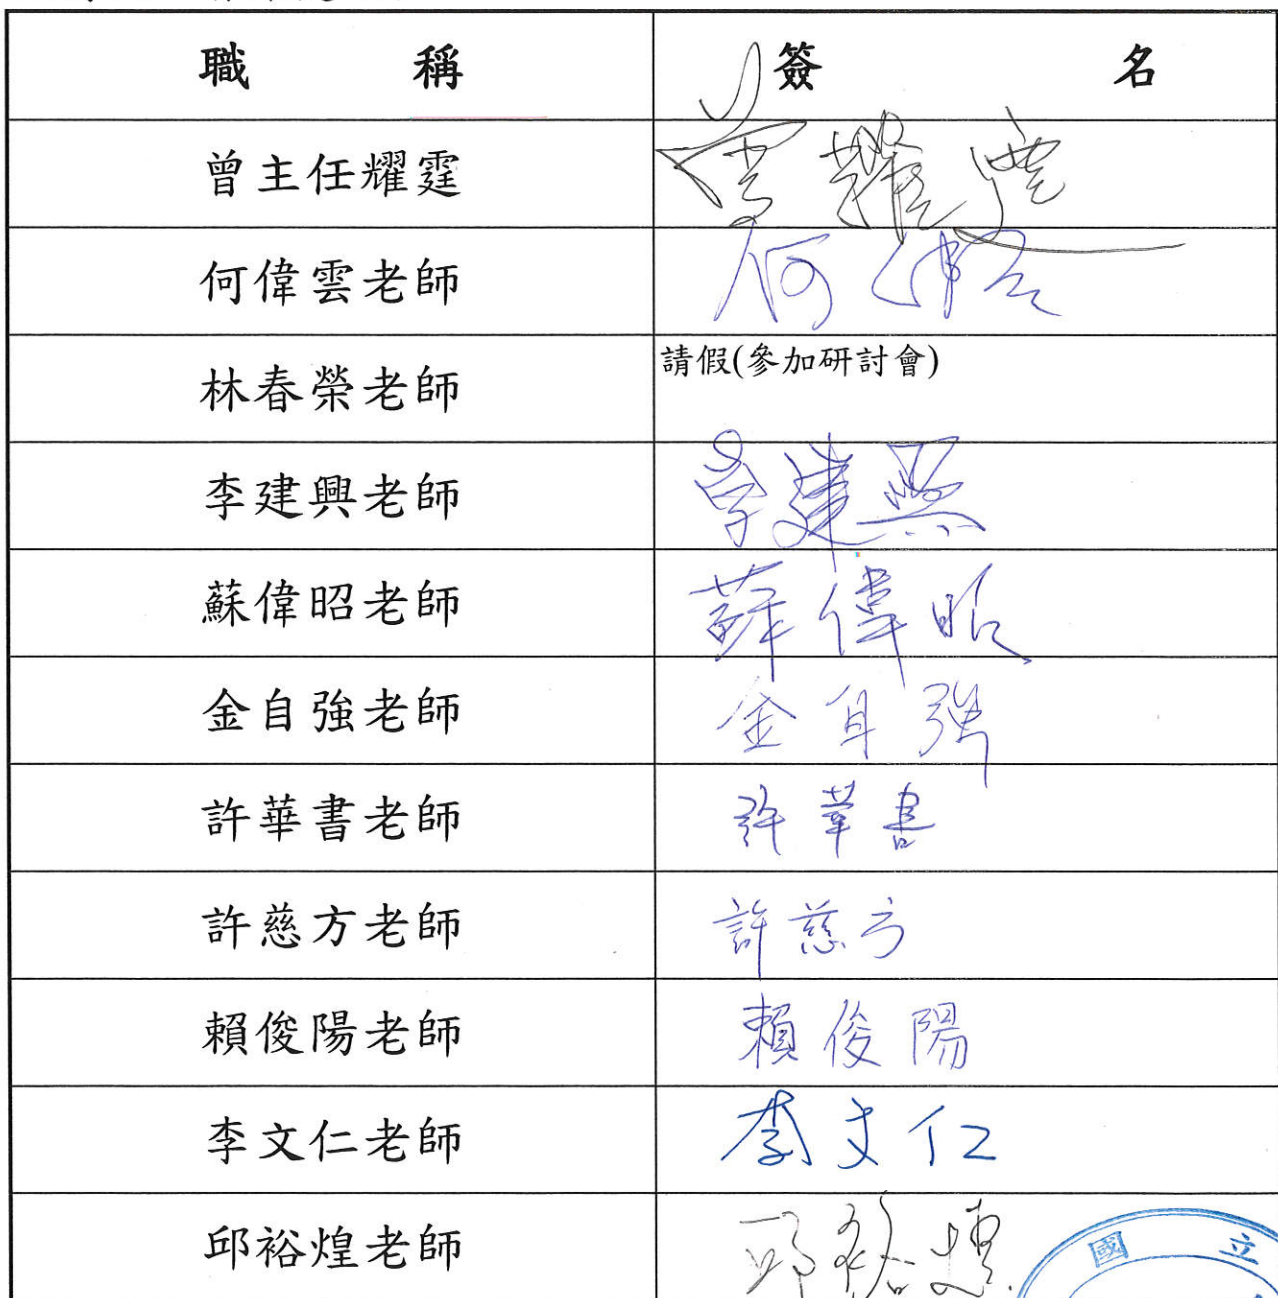 職 稱 簽 名
曾主任耀霆 曾耀霆
何偉雲老師 何偉雲
林春榮老師 請假(參加研討會)
李建興老師 李建興
蘇偉昭老師 蘇偉昭
金自強老師 金自強
許華書老師 許華書
許慈方老師 許慈方
賴俊陽老師 賴俊陽
李文仁老師 李文仁
邱裕煌老師 邱裕煌
國立